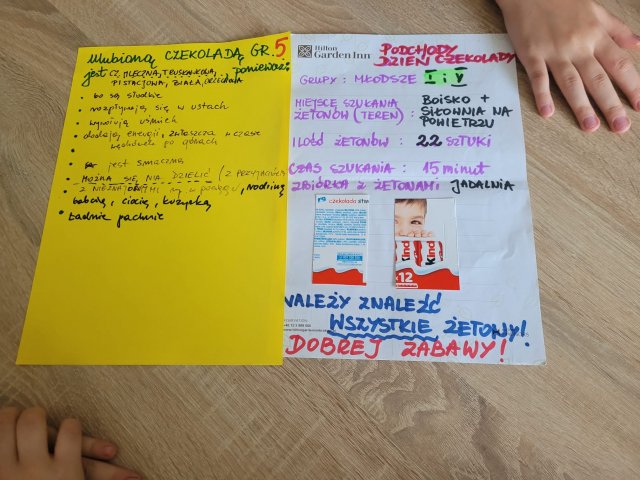 Ulubioną CZEKOLADĄ GR. 5
jest CZ. MLECZNA, TRUSKAWKOWA, ponieważ:
PISTACJOWA, BIAŁA, OREOWA
• są słodkie
• rozpływają się w ustach
• wywołują uśmiech
• dodają energii, zwłaszcza w czasie
wędrówek po górach
• jest smaczna
• MOŻNA SIĘ NIĄ DZIELIĆ (Z PRZYJACIÓŁMI
Z NIEZNAJOMYMI np. w pociągu, rodziną
babcią, ciocią, kuzynką
• Ładnie pachnie
Hilton
Garden Inn
PODCHODY
DZIEŃ CZEKOLADY
GRUPY: MŁODSZE I i V
MIEJSCE SZUKANIA
ŻETONÓW (TEREN): BOISKO +
SIŁOWNIA NA
POWIETRZU
ILOŚĆ ŻETONÓW: 22 SZTUKI
CZAS SZUKANIA: 15 minut
ZBIÓRKA Z ŻETONAMI JADALNIA
czekolada
Kind
x12
NALEŻY ZNALEŹĆ
WSZYSTKIE ŻETONY!
DOBREJ ZABAWY!